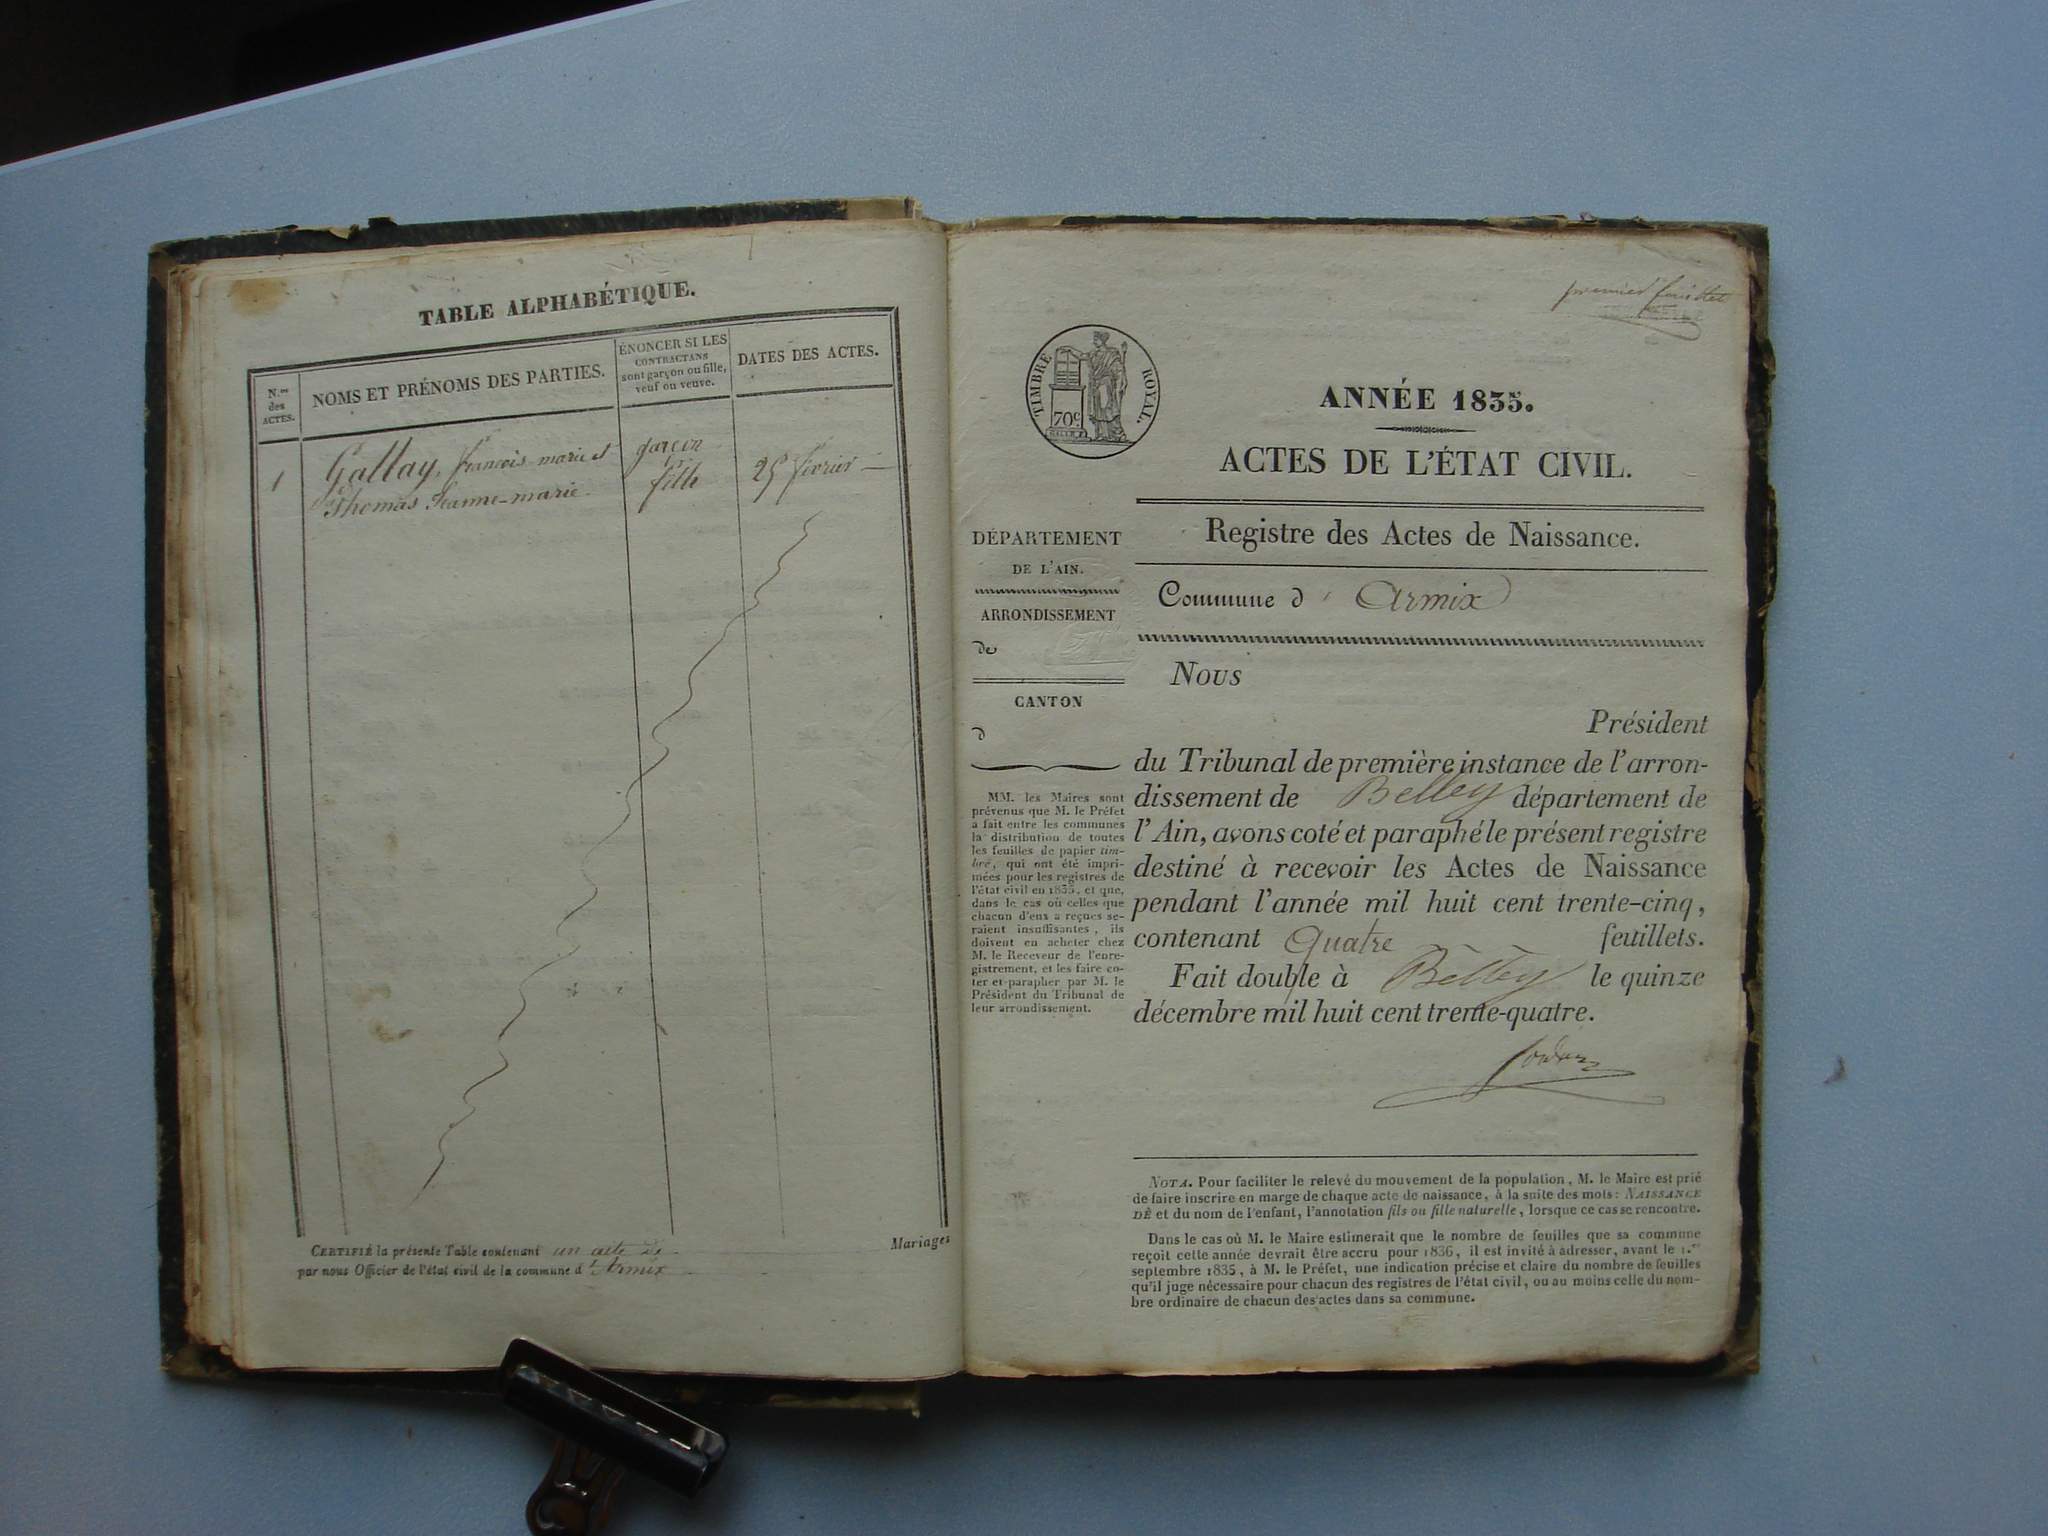 TABLE ALPHABÉTIQUE.
N.os des ACTES.
NOMS ET PRÉNOMS DES PARTIES.
ÉNONCER SI LES
CONTRACTANS
sont garçon ou fille,
veuf ou veuve.
DATES DES ACTES.
1
Gallay, françois-marie et
Thomas Jeanne-marie.
garçon
et
fille
25 février
CERTIFIÉ la présente Table contenant un acte de
par nous Officier de l'état civil de la commune d'Armix
Mariages
premier feuillet
TIMBRE ROYAL.
70c
ANNÉE 1835.
ACTES DE L'ÉTAT CIVIL.
Registre des Actes de Naissance.
Commune d' Armix
DÉPARTEMENT
DE L'AIN.
ARRONDISSEMENT
de
CANTON
d
MM. les Maires sont
prévenus que M. le Préfet
a fait entre les communes
la distribution de toutes
les feuilles de papier tim-
bré, qui ont été impri-
mées pour les registres de
l'état civil en 1835, et que,
dans le cas où celles que
chacun d'eux a reçues se-
raient insuffisantes, ils
doivent en acheter chez
M. le Receveur de l'enre-
gistrement, et les faire co-
ter et parapher par M. le
Président du Tribunal de
leur arrondissement.
Nous
Président
du Tribunal de première instance de l'arron-
dissement de Belley département de
l'Ain, avons coté et paraphé le présent registre
destiné à recevoir les Actes de Naissance
pendant l'année mil huit cent trente-cinq,
contenant Quatre feuillets.
Fait double à Belley le quinze
décembre mil huit cent trente-quatre.
NOTA. Pour faciliter le relevé du mouvement de la population, M. le Maire est prié
de faire inscrire en marge de chaque acte de naissance, à la suite des mots: NAISSANCE
DE et du nom de l'enfant, l'annotation fils ou fille naturelle, lorsque ce cas se rencontre.
Dans le cas où M. le Maire estimerait que le nombre de feuilles que sa commune
reçoit cette année devrait être accru pour 1836, il est invité à adresser, avant le 1.er
septembre 1835, à M. le Préfet, une indication précise et claire du nombre de feuilles
qu'il juge nécessaire pour chacun des registres de l'état civil, ou au moins celle du nom-
bre ordinaire de chacun des actes dans sa commune.